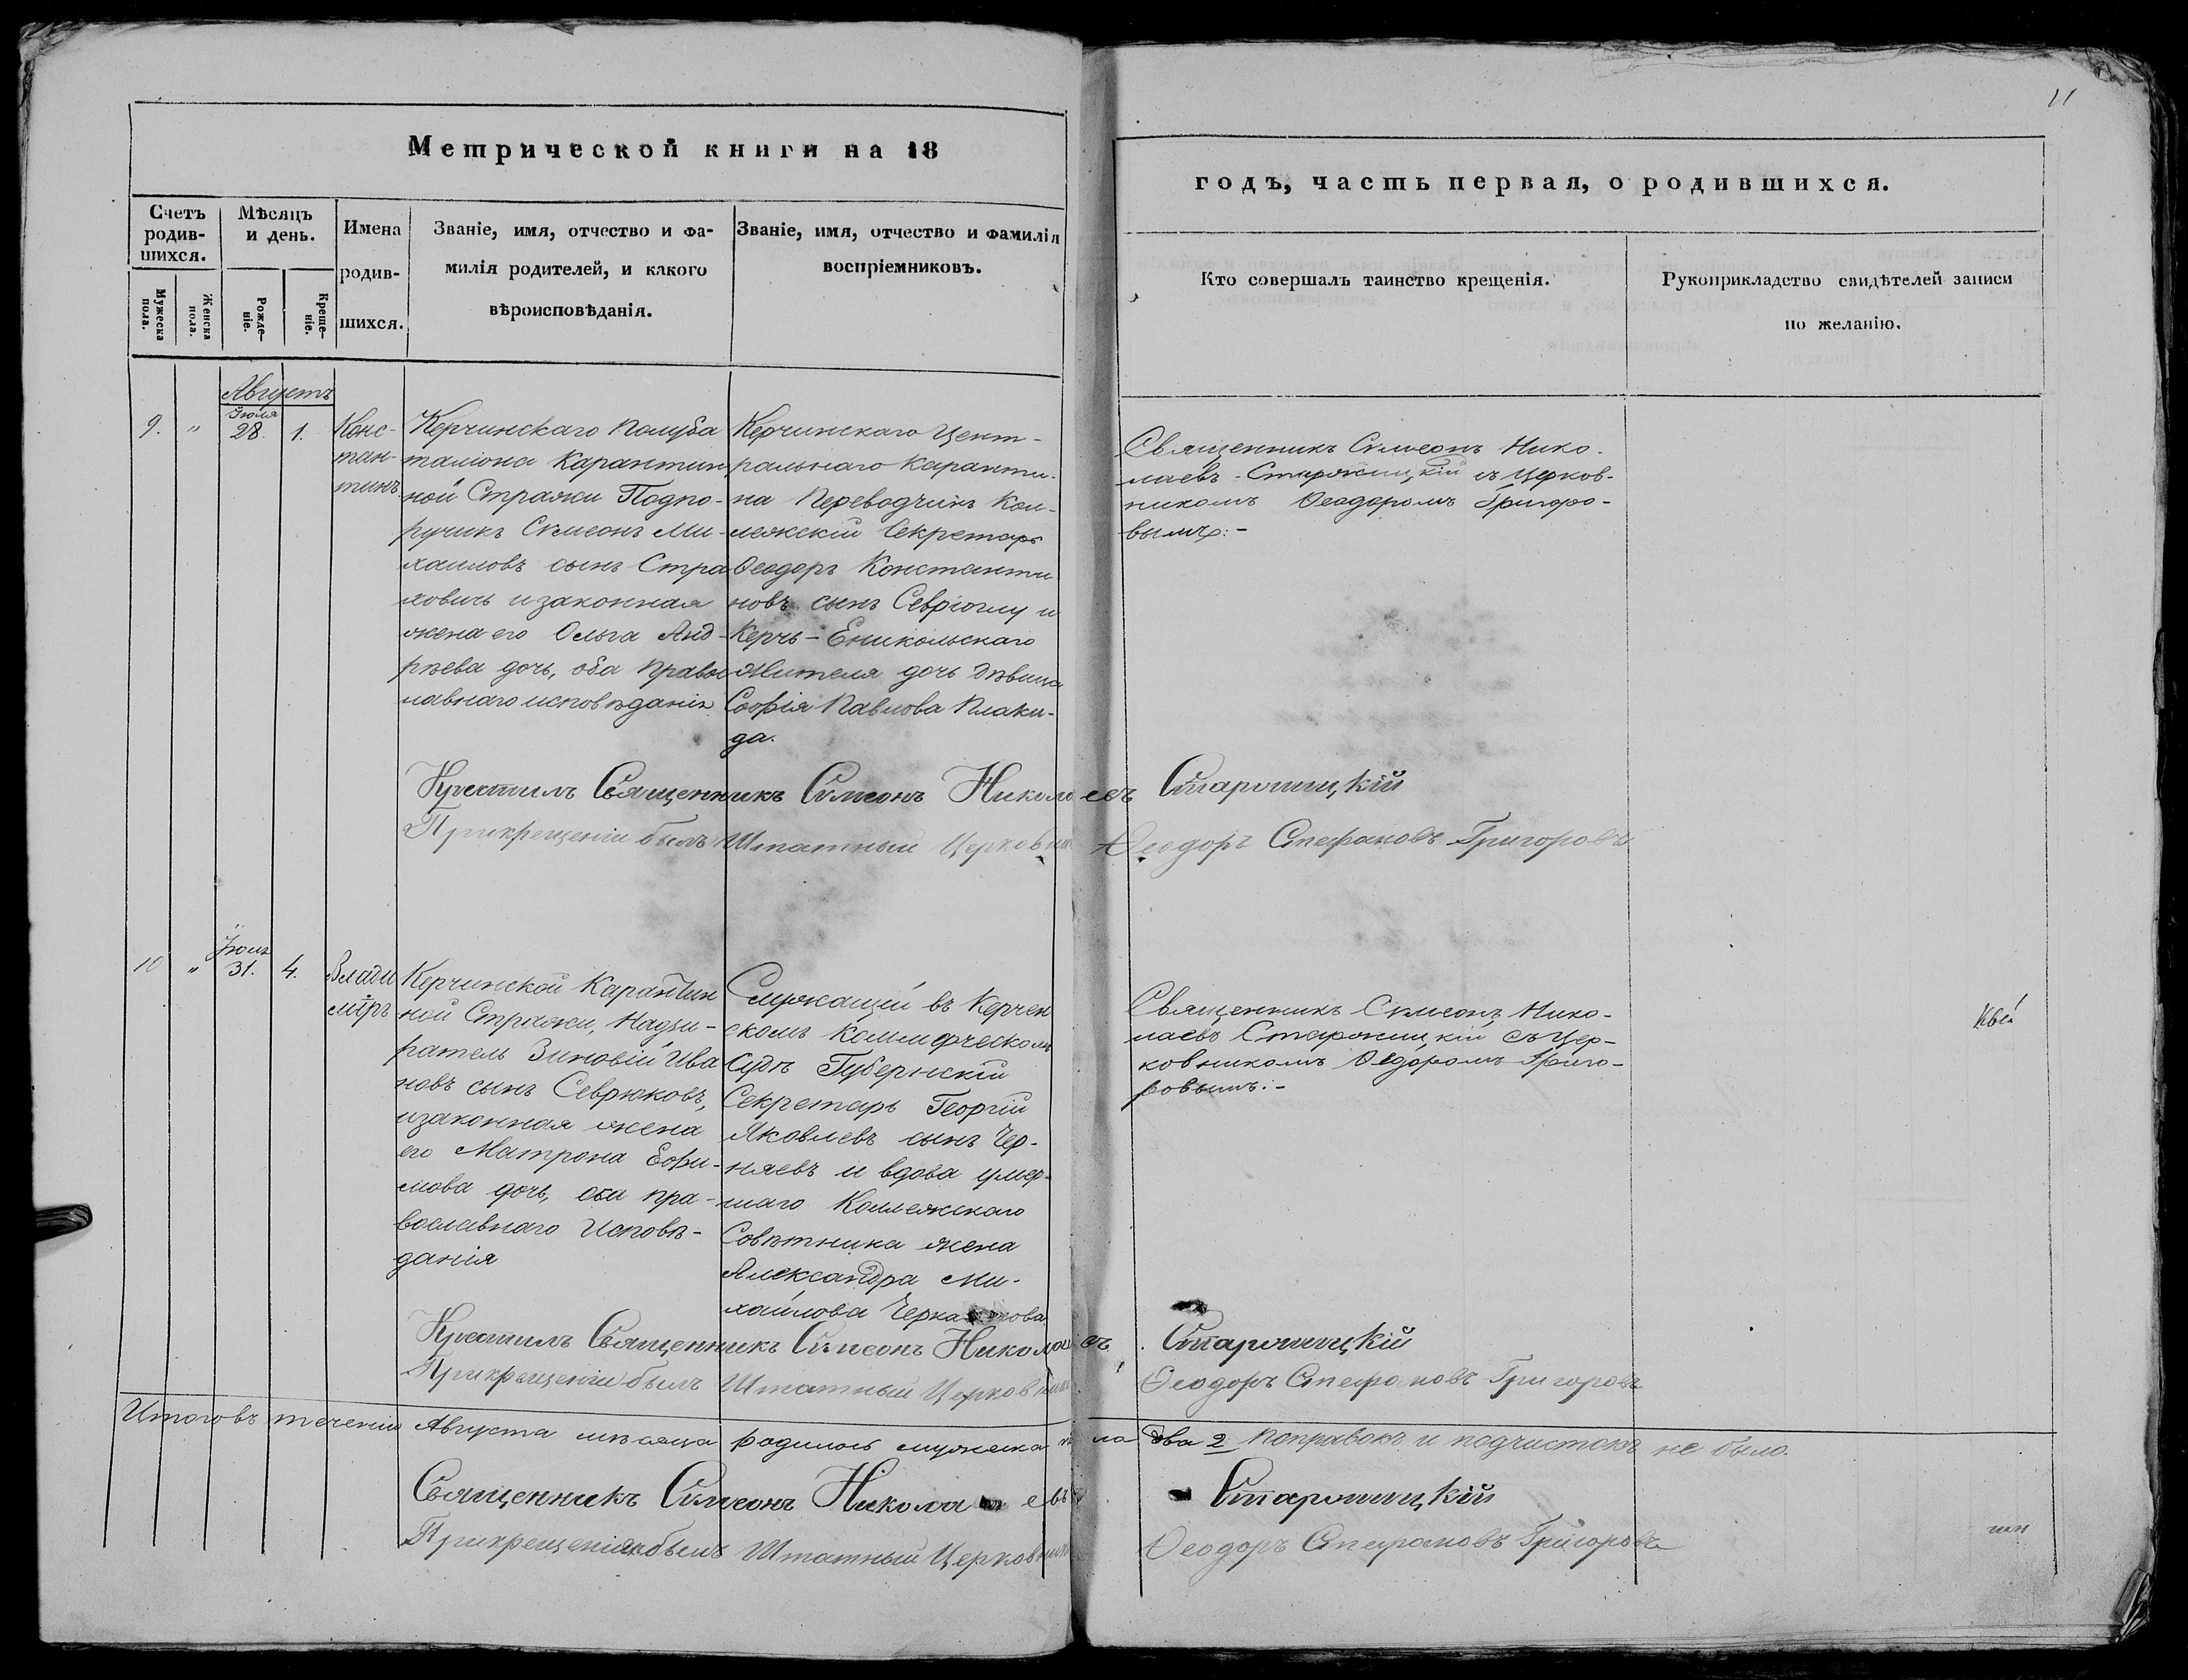 11
Метрической книги на 18
годъ, часть первая, о родившихся.
Счетъ родив-шихся.
Мужеска пола.
Женска пола.
Мѣсяцъ и день.
Рожде-ніе.
Креще-ніе.
Имена
родив-
шихся.
Званіе, имя, отчество и фа-
милія родителей, и какого
вѣроисповѣданія.
Званіе, имя, отчество и фамилія
воспріемниковъ.
Кто совершалъ таинство крещенія.
Рукоприкладство свидѣтелей записи
по желанію.
Августъ
9.
"
Іюля
28.
1.
Конс-
тан-
тинъ
Керчинскаго Полуба
таліона Карантин
ной Стражи Подпо-
ручикъ Сѵмеонъ Ми-
хаиловъ сынъ Стра
ховичъ и законная
жена его Ольга Анд-
рѣева дочь, оба Правос
лавнаго исповѣданія
Керчинскаго Цент-
ральнаго Каранти-
на Переводчикъ Кол-
лежскій Секретарь
Ѳеодоръ Константи
новъ сынъ Севріоглу и
Керчь-Еникольскаго
Жителя дочь дѣвица
Софія Павлова Плаки-
да.
Священникъ Сѵмеонъ Нико-
лаевъ Старожицкій съ Церков-
никомъ Ѳеодоромъ Григоро-
вымъ:-
Крестилъ Священникъ Сѵмеонъ Николаевъ Старожицкій
При крещеніи былъ Штатный Церковник Ѳеодоръ Стефановъ Григоровъ
10
"
Іюля
31.
4.
Влади
міръ
Керчинской Карантин
ной Стражи, Надзи-
ратель Зиновій Ива
новъ сынъ Севрюковъ,
и законная жена
его Матрона Ефи-
мова дочь, оба пра-
вославнаго Исповѣ-
данія
Служащій въ Керчен
скомъ Коммерческомъ
Судѣ Губернскій
Секретарь Георгій
Яковлевъ сынъ Чер-
няевъ и вдова умер-
шаго Коллежскаго
Совѣтника жена
Александра Ми-
хайлова
Священникъ Сѵмеонъ Нико-
лаевъ Старожицкій съ Цер-
ковникомъ Ѳеодоромъ Григо-
ровымъ:-
Крестилъ Священникъ Сѵмеонъ Николаевъ Старожицкій
При крещеніи былъ Штатный Церковник Ѳеодоръ Стефановъ Григоровъ
Итого въ теченіи Августа мѣсяца родилось мужеска пола два 2 Поправокъ и подчистокъ не было.
Священникъ Сѵмеонъ Николаевъ Старожицкій
При крещеніяхъ былъ Штатный Церковник Ѳеодоръ Стефановъ Григоровъ